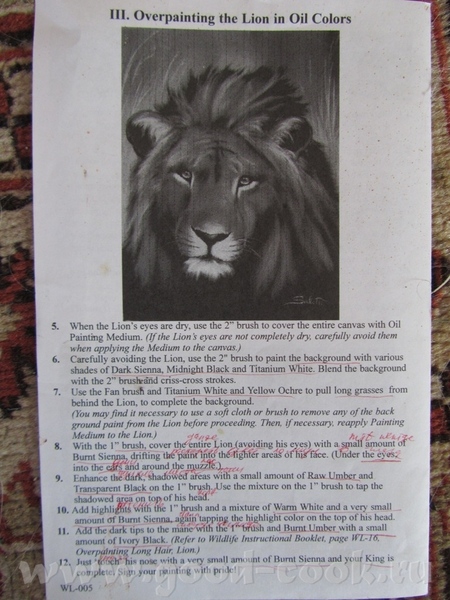 III. Overpainting the Lion in Oil Colors
5. When the Lion's eyes are dry, use the 2" brush to cover the entire canvas with Oil
Painting Medium. (If the Lion's eyes are not completely dry, carefully avoid them
when applying the Medium to the canvas.)
6. Carefully avoiding the Lion, use the 2" brush to paint the background with various
shades of Dark Sienna, Midnight Black and Titanium White. Blend the background
with the 2" brush and criss-cross strokes.
7. Use the Fan brush and Titanium White and Yellow Ochre to pull long grasses from
behind the Lion, to complete the background.
(You may find it necessary to use a soft cloth or brush to remove any of the back
ground paint from the Lion before proceeding. Then, if necessary, reapply Painting
Medium to the Lion.)
8. With the 1" brush, cover the entire Lion (avoiding his eyes) with a small amount of
Burnt Sienna, drifting the paint into the lighter areas of his face. (Under the eyes,
into the ears and around the muzzle.)
9. Enhance the dark, shadowed areas with a small amount of Raw Umber and
Transparent Black on the 1" brush. Use the mixture on the 1" brush to tap the
shadowed area on top of his head.
10. Add highlights with the 1" brush and a mixture of Warm White and a very small
amount of Burnt Sienna, again tapping the highlight color on the top of his head.
11. Add the dark tips to the mane with the 1" brush and Burnt Umber with a small
amount of Ivory Black. (Refer to Wildlife Instructional Booklet, page WL-16,
Overpainting Long Hair, Lion.)
12. Just "touch" his nose with a very small amount of Burnt Sienna and your King is
complete. Sign your painting with pride!
WL-005